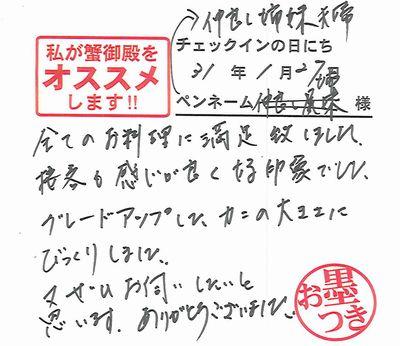 私が蟹御殿を
オススメ
します!!
仲良し姉妹夫婦
チェックインの日にち
31年 1月27日
ペンネーム 仲良し 様
全てのお料理に満足致しました。
接客も感じが良く好印象でした。
グレードアップした、カニの大きさに
びっくりしました。
又ぜひお伺いしたいと
思います。ありがとうございました。
お墨つき